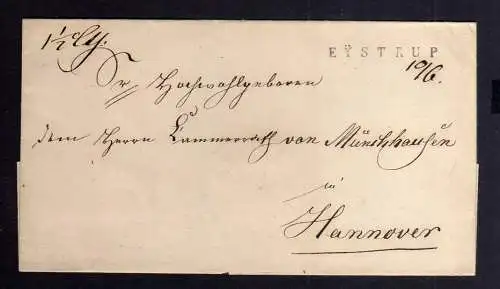 EŸSTRUP
10/6.
Sr Hochwohlgeboren
dem Herrn Cammerrath von Münchhausen
in
Hannover